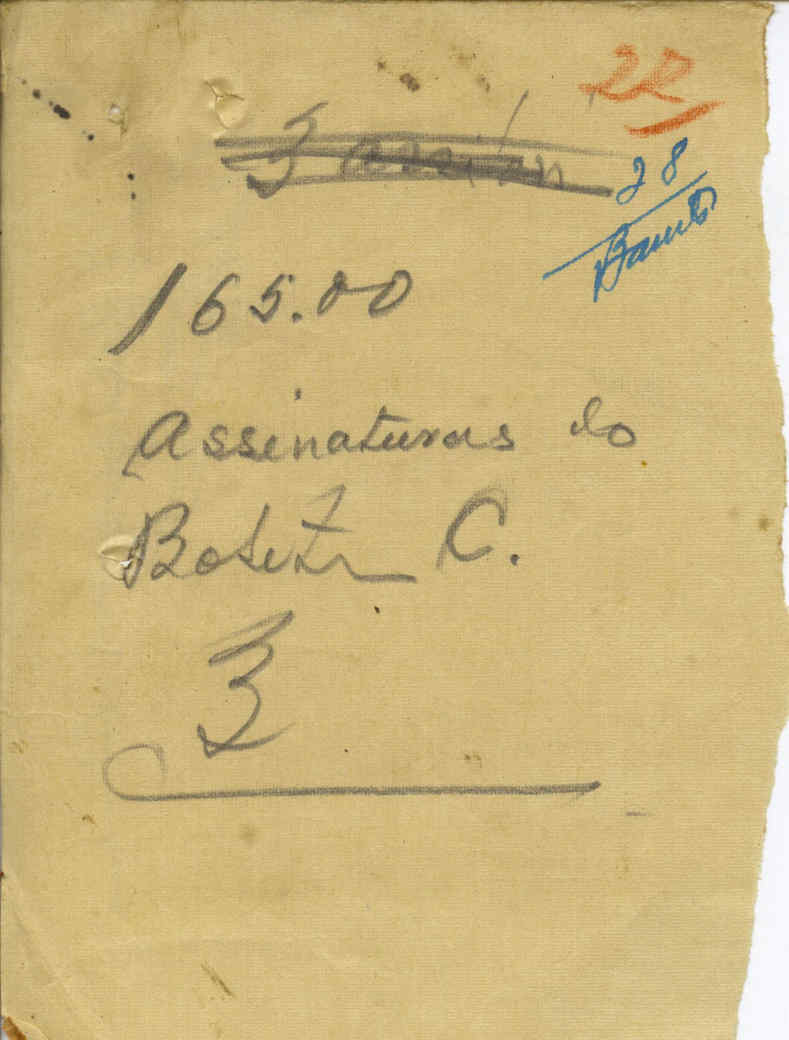 22
28
165.00
Assinaturas do
Boletin C.
3